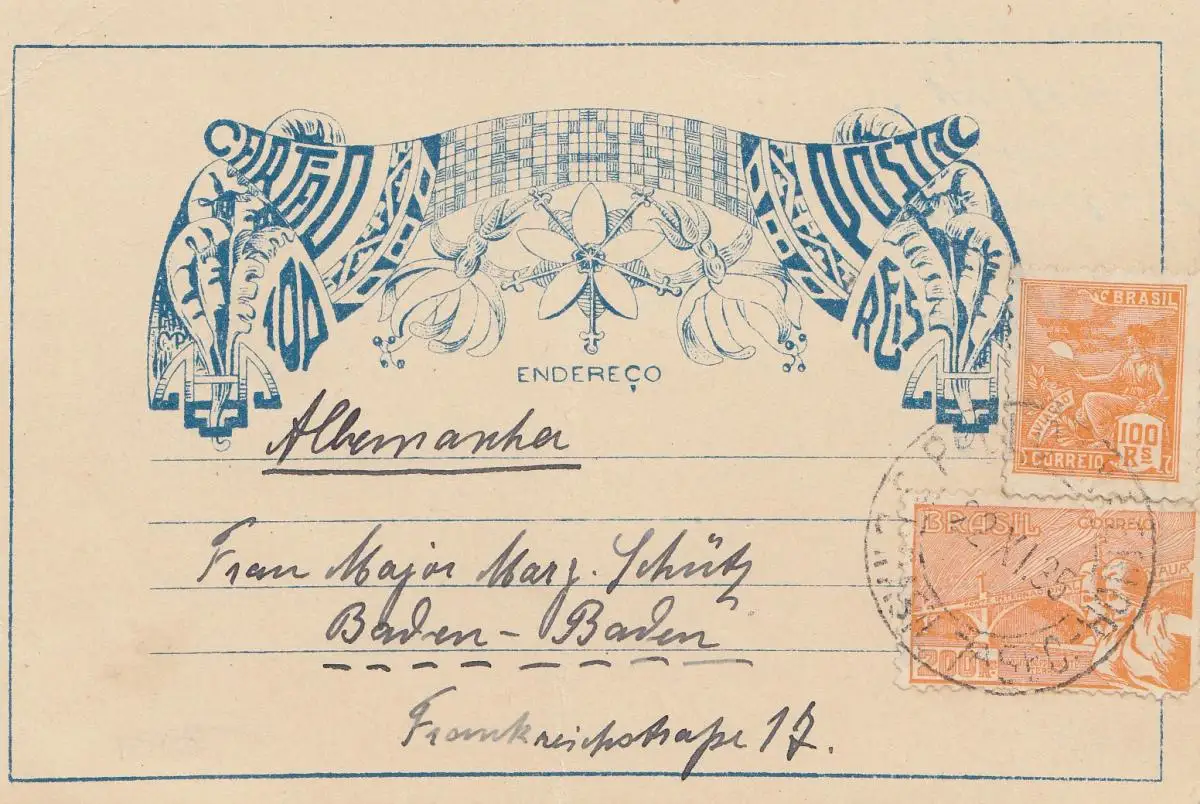 CARTÃO POSTAL
100 RÉIS
ENDEREÇO
Allemanha
Frau Major Marg. Schütz
Baden-Baden
Frankreichstraße 17.
BRASIL
AVIAÇÃO
100
CORREIO Rs
BRASIL CORREIO
PONTE INTERNACIONAL
200
22.VI.36